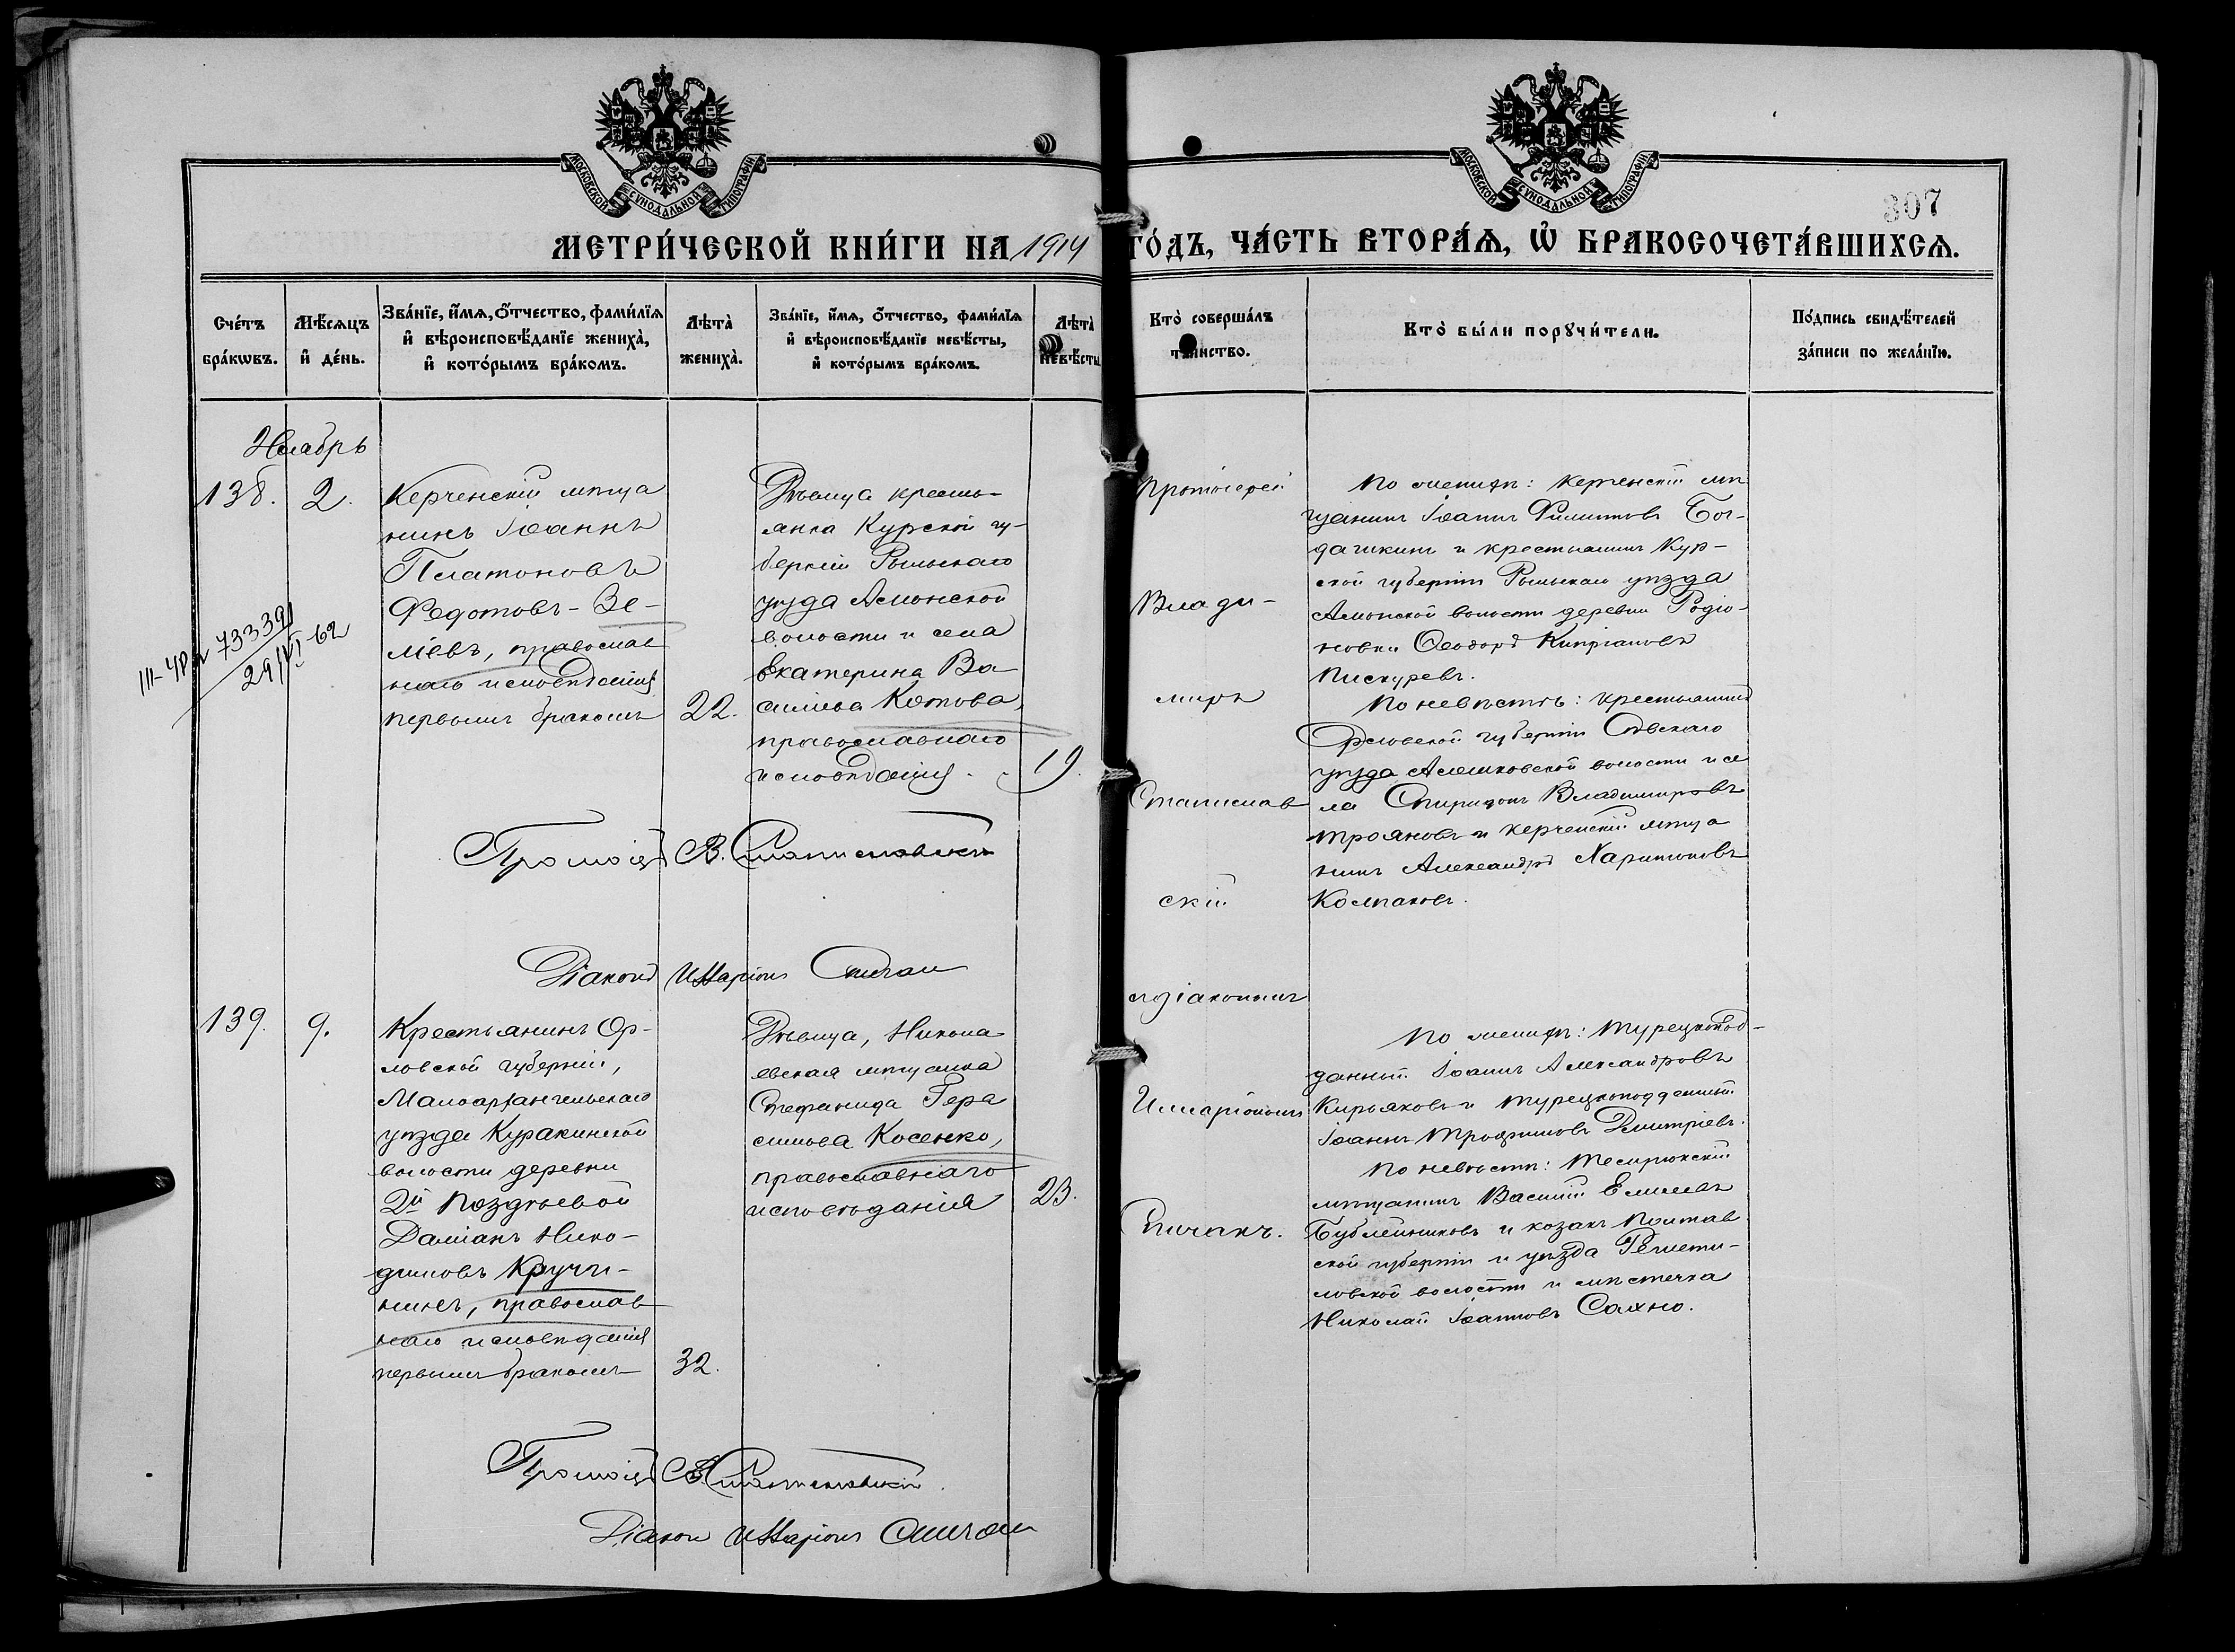 МОСКОВСКОЙ СУНОДАЛЬНОЙ ТИПОГРАФІИ
МОСКОВСКОЙ СУНОДАЛЬНОЙ ТИПОГРАФІИ
307
МЕТРИ́ЧЕСКОЙ КНИ́ГИ НА 1914 ГО́ДЪ, ЧА́СТЬ ВТОРА́Ѧ, Ѽ БРАКОСОЧЕТА́ВШИХСѦ.
Сче́тъ
бра́кѡвъ.
Мѣ́сѧцъ
и҆ де́нь.
Зва́нїе, и҆́мѧ, ѻ҆́тчество, фами́лїѧ
и҆ вѣроисповѣ́данїе жениха̀,
и҆ кото́рымъ бра́комъ.
Лѣта̀
жениха̀.
Зва́нїе, и҆́мѧ, ѻ҆́тчество, фами́лїѧ
и҆ вѣроисповѣ́данїе невѣ́сты,
и҆ кото́рымъ бра́комъ.
Лѣта̀
невѣ́сты
Кто̀ соверша́лъ
таинство.
Кто̀ бы́ли порꙋчи́тели.
По́дпись свидѣ́телей
за́писи по жела́нїю.
Ноябрь
138.
2.
Керченскій мѣща
нинъ Іоаннъ
Платоновъ
Федотовъ-Зе-
лiевъ, православ
наго исповѣданія
первымъ бракомъ
22.
Дѣвица кресть-
янка Курской гу-
берніи Рыльскаго
уѣзда Асмонской
волости и села
Екатерина Ва-
сильева Котова,
православнаго
исповѣданія.
19.
73339
29/VI 62
Протоіерей
Влади-
миръ
Станислав
скій
съ діакономъ
Илларіономъ
Спичакъ.
По женихѣ: керченскій мѣ
щанинъ Іоаннъ Филиповъ Бог-
дашкинъ и крестьянинъ Кур-
ской губерніи Рыльскаго уѣзда
Асмонской волости деревни Родіо-
новки Ѳеодоръ Кипріановъ
Пискуревъ.
По невѣстѣ: крестьянинъ
Орловской губерніи Сѣвскаго
уѣзда Алешковской волости и се
ла Спиридонъ Владиміровъ
Трояновъ и керченскій мѣща
нинъ Александръ Харитоновъ
Колпаковъ.
Протоіер. В. Станиславскій
Діаконъ Илларіонъ Спичак
139.
9.
Крестьянинъ Ор-
ловской губерніи,
Малоархангельскаго
уѣзда Куракинской
волости деревни
2й Поздѣевой
Даміанъ Нико-
димовъ Кручи-
нинъ, православ
наго исповѣданія
первымъ бракомъ
32.
Дѣвица, Никола
евская мѣщанка
Стефанида Гера
симова Косенко,
православнаго
исповѣданія
23.
По женихѣ: турецкопод-
данный Іоаннъ Александровъ
Кирьяковъ и турецкоподданный
Іоаннъ Трофимовъ Димитріевъ.
По невѣстѣ: темрюкскій
мѣщанинъ Василій Елисеевъ
Бублейниковъ и козакъ Полтав
ской губерніи и уѣзда Решети-
ловской волости и мѣстечка
Николай Іоанновъ Сахно.
Протоіер. В. Станиславскій.
Діакон Илларіонъ Спичак